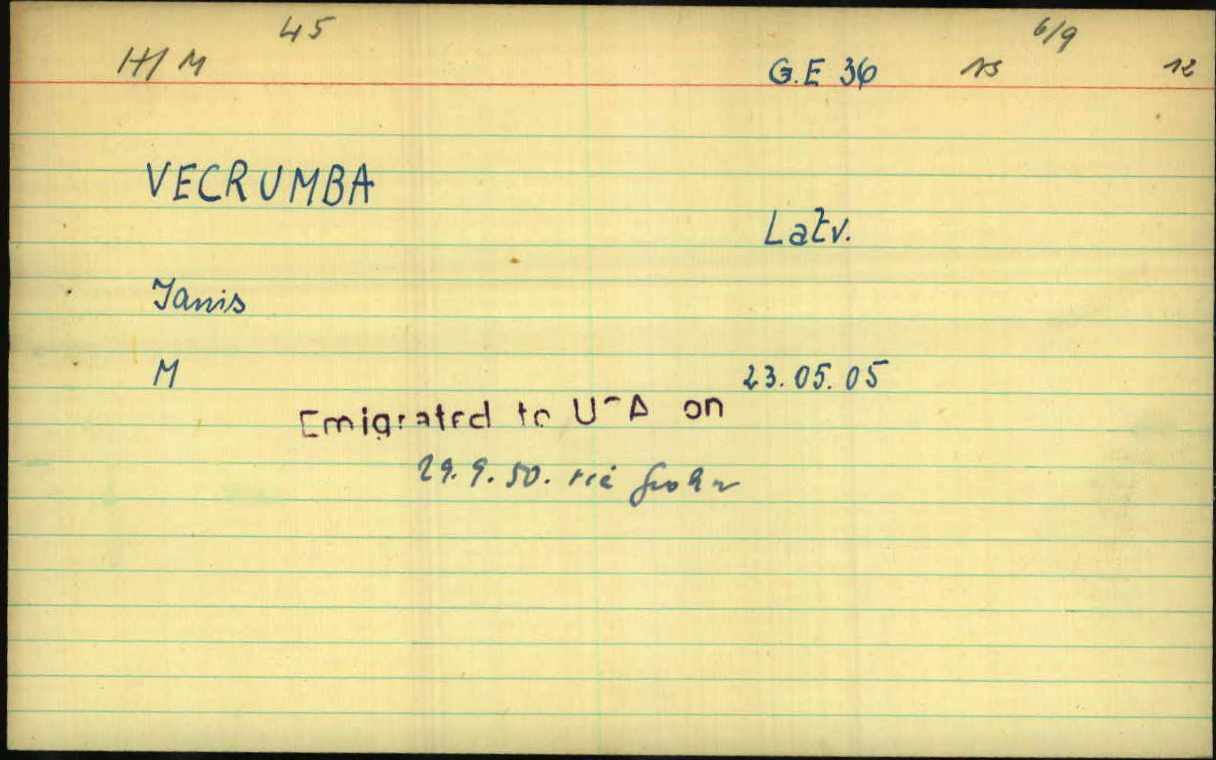 45 6/9
H/M G.E 36 NS 12
VECRUMBA
Latv.
Janis
M 23.05.05
Emigrated to USA on
29.9.50. via Grohn